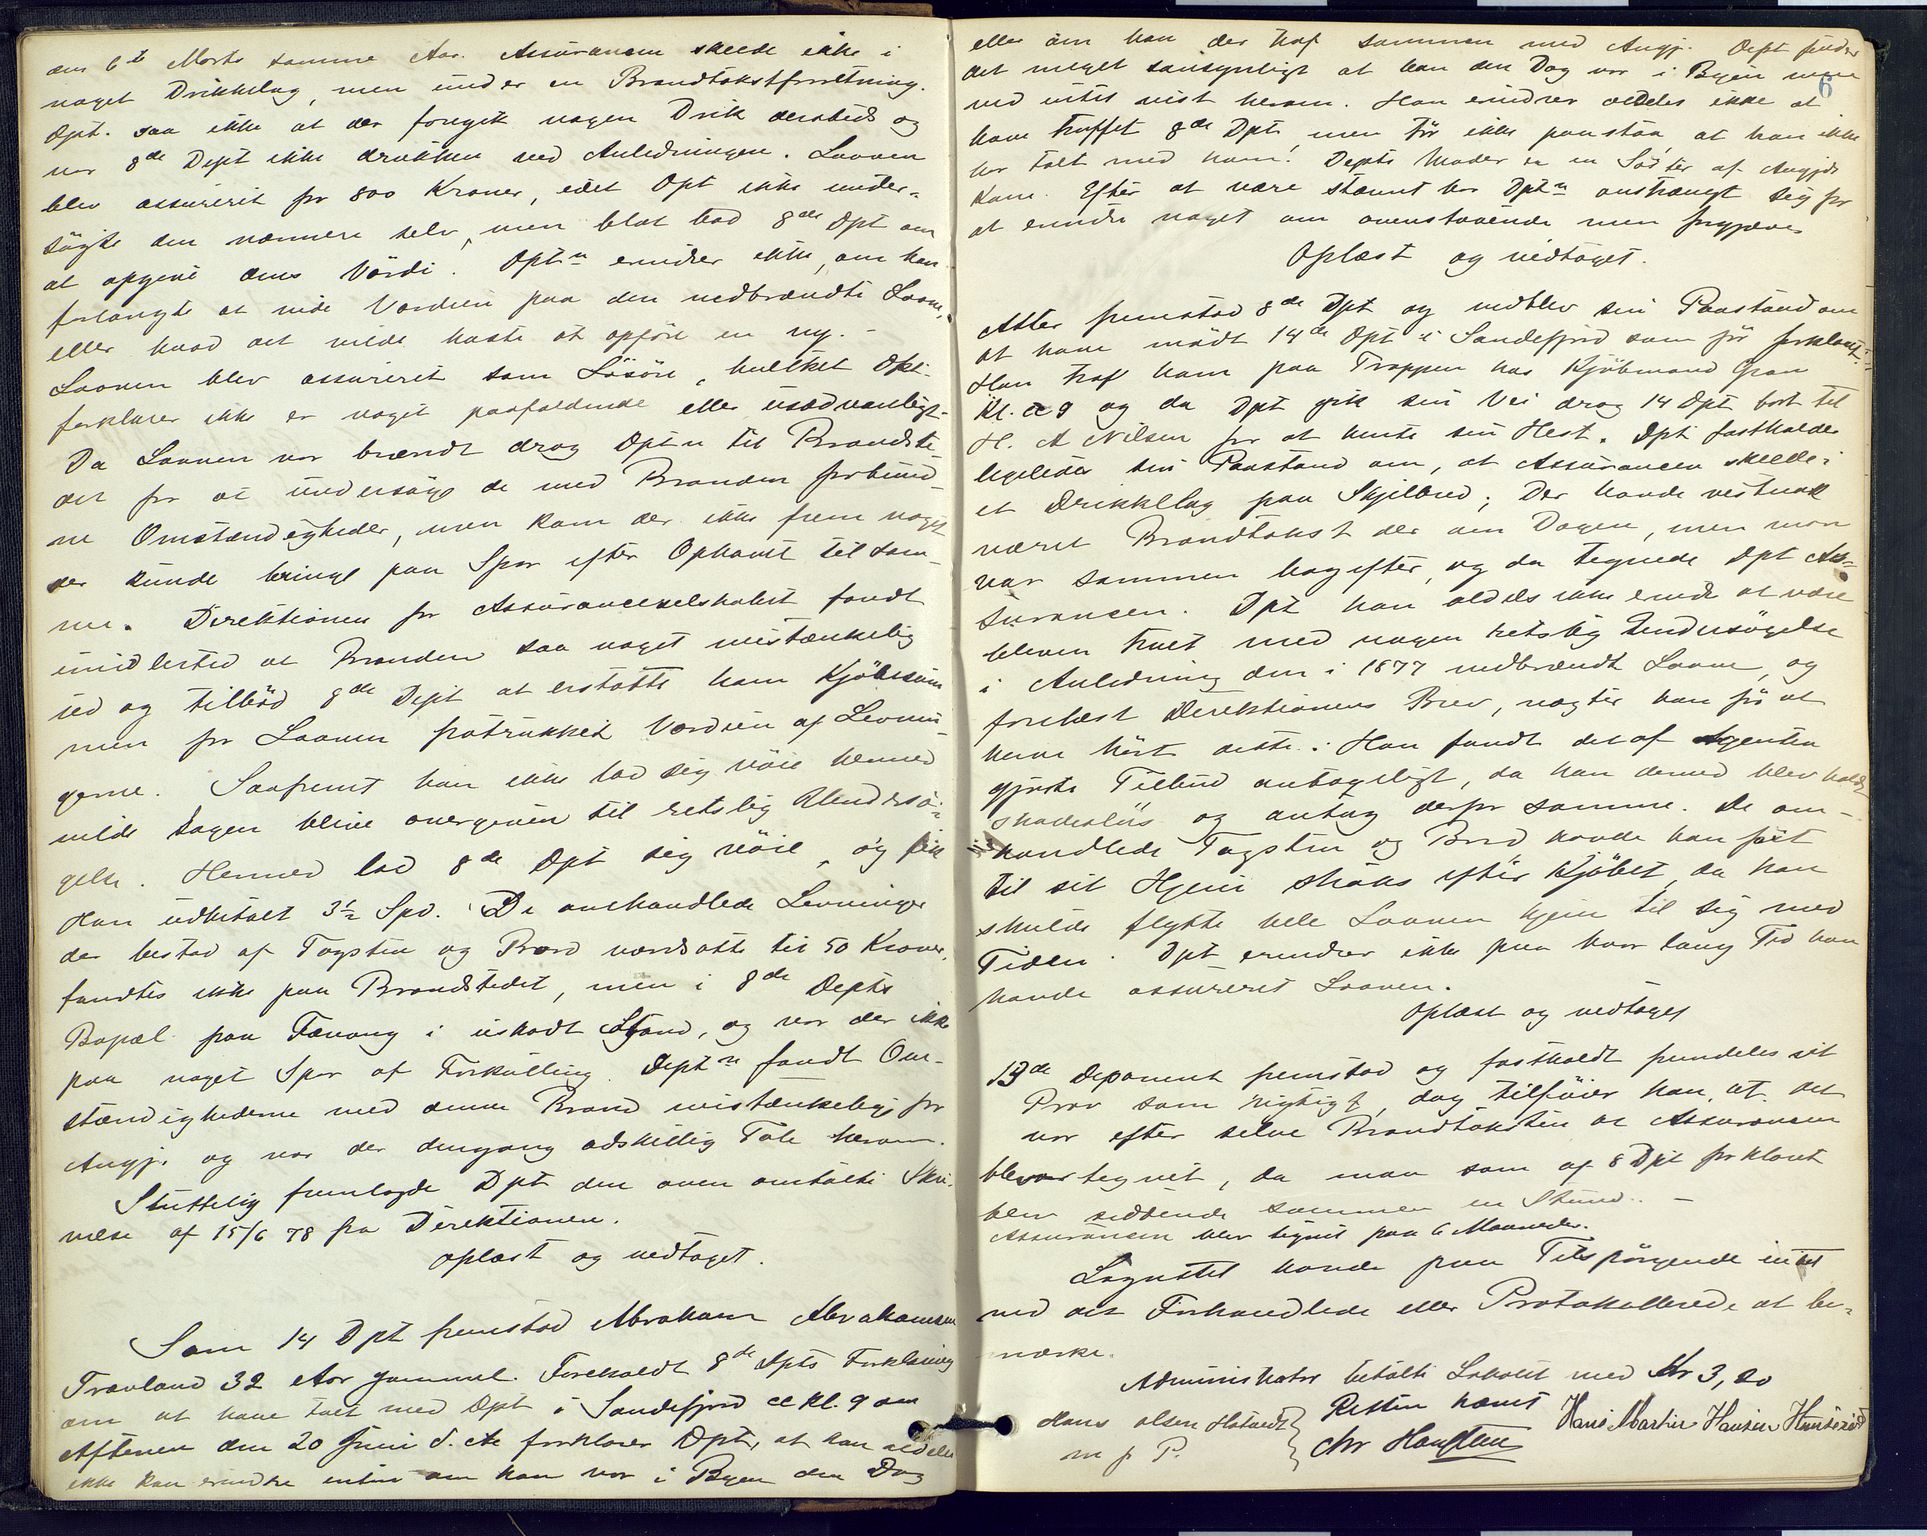 den 6te Marts samme Aar. Assurancen skede ikke i
noget Drikkelag, men under en Brandtakstforretning.
Dpt. saa ikke at der foregik nogen Drik dersteds og
var 8de Dept ikke drukken ved Anledningen. Laaven
blev assureret for 800 Kroner, idet Dpt ikke under-
søgte den nærmere selv, men blot bad 8de Dpt om
at opgive dens Værdi. Dptn erindrer ikke, om han
forlangte at vide Værdien paa den nedbrændte Laave,
eller hvad det vilde koste at opføre en ny. -
Laaven blev assureret som Løsøre, hvilket Dpt.
forklarer ikke er noget paafaldende eller usædvanligt.
Da Laaven var brændt drog Dptn til Brandste-
det for at undersøge de med Branden forbund-
ne Omstændigheder, men kom der ikke frem noget
der kunde bringe paa Spor efter Ophavet til sam-
me. Direktionen for Assuranceselskabet fandt
imidlertid at Branden saa noget mistænkelig
ud og tilbød 8de Dept at erstatte ham Kjøbesum
men for Laaven fratrukket Værdien af Levnin-
gerne. Saafremt han ikke lod sig nøie hermed
vilde Sagen blive overgiven til retslig Undersø-
gelse. Hermed lod 8de Dpt sig nøie, og fik
Han udbetalt 3½ Spd. De omhandlede Levninger
der bestod af Tagsten og Bord værdsatte til 50 Kroner,
fandtes ikke paa Brandstedet, men i 8de Depts
Bopæl paa Fævang i uskadt Stand, og var der ikke
paa noget Spor af Forkulling. Deptn fandt Om-
stændighederne med denne Brand mistænkelig for
Angj. og var der dengang adskillig Tale herom.
Sluttelig fremlagde Dpt den oven omtalte Skri-
velse af 15/6 78 fra Direktionen.
oplæst og vedtaget.
Som 14 Dpt fremstod Abraham Abrahamsen
Travland 32 Aar gammel. Foreholdt 8de Dpts Forklaring
om at have talt med Dpt i Sandefjord kl. 9 om
Aftenen den 20 Juni d. A. forklarer Dpt, at han aldeles
ikke kan erindre enten om han var i Byen den Dag
6
eller om han der traf sammen med Angj. Dept finder
det meget sansynligt at han den Dag var i Byen men
ved intet vist herom. Han erindrer aldeles ikke at
have truffet 8de Dpt, men tør ikke paastaa, at han ikke
har talt med ham. Depts Moder er en Søster af Angjds
Kone. Efter at være stævnt har Dptn anstrængt sig for
at erindre noget om ovenstaaende men forgjæves
Oplæst og vedtaget.
Atter fremstod 8de Dpt og vedblev sin Paastand om
at have mødt 14de Dpt i Sandefjord som før forklaret.
Han traf ham paa Trappen hos Kjøbmand Gran
Kl. 9 og da Dpt gik sin Vei drog 14 Dpt bort til
H. A Nilsen for at hente sin Hest. Dpt fastholder
ligeledes sin Paastand om, at Assurancen skede i
et Drikkelag paa Skjelbred; Der havde vistnok
været Brandtakst der om Dagen, men man
var sammen bagefter, og da tegnede Dpt As-
surancen. Dpt kan aldeles ikke erindre at være
bleven truet med nogen retslig Undersøgelse
i Anledning den i 1877 nedbrændt Laave, og
forelæst Direktionens Brev, nægter han før at
have hørt dette. Han fandt det af Agenten
gjorte Tilbud antageligt, da han derved blev holdt
skadesløs og antog derfor samme. De om-
handlede Tagsten og Bord havde han ført
til sit Hjem straks efter Kjøbet, da han
skulde flytte hele Laaven hjem til sig med
Tiden. Dpt erindrer ikke paa hvor lang Tid han
havde assureret Laaven.
Oplæst og vedtaget
13de Deponent fremstod og fastholdt fremdeles sit
Prov som rigtigt, dog tilføier han, at det
var efter selve Brandtaksten at Assurancen
blev tegnet, da man som af 8 Dpt forklaret
blev siddende sammen en Stund. -
Assurancen blev tegnet paa 6 Maaneder.
Lagrettet havde paa Tilspørgende intet
ved det Forhandlede eller Protokollerede at be-
mærke.
Administrator betalte Lokalet med Kr 3,20
Retten hævet
Hans Olsen Hotvedt
m p P.
Chr Hansteen
Hans Martin Hansen Hunsrød